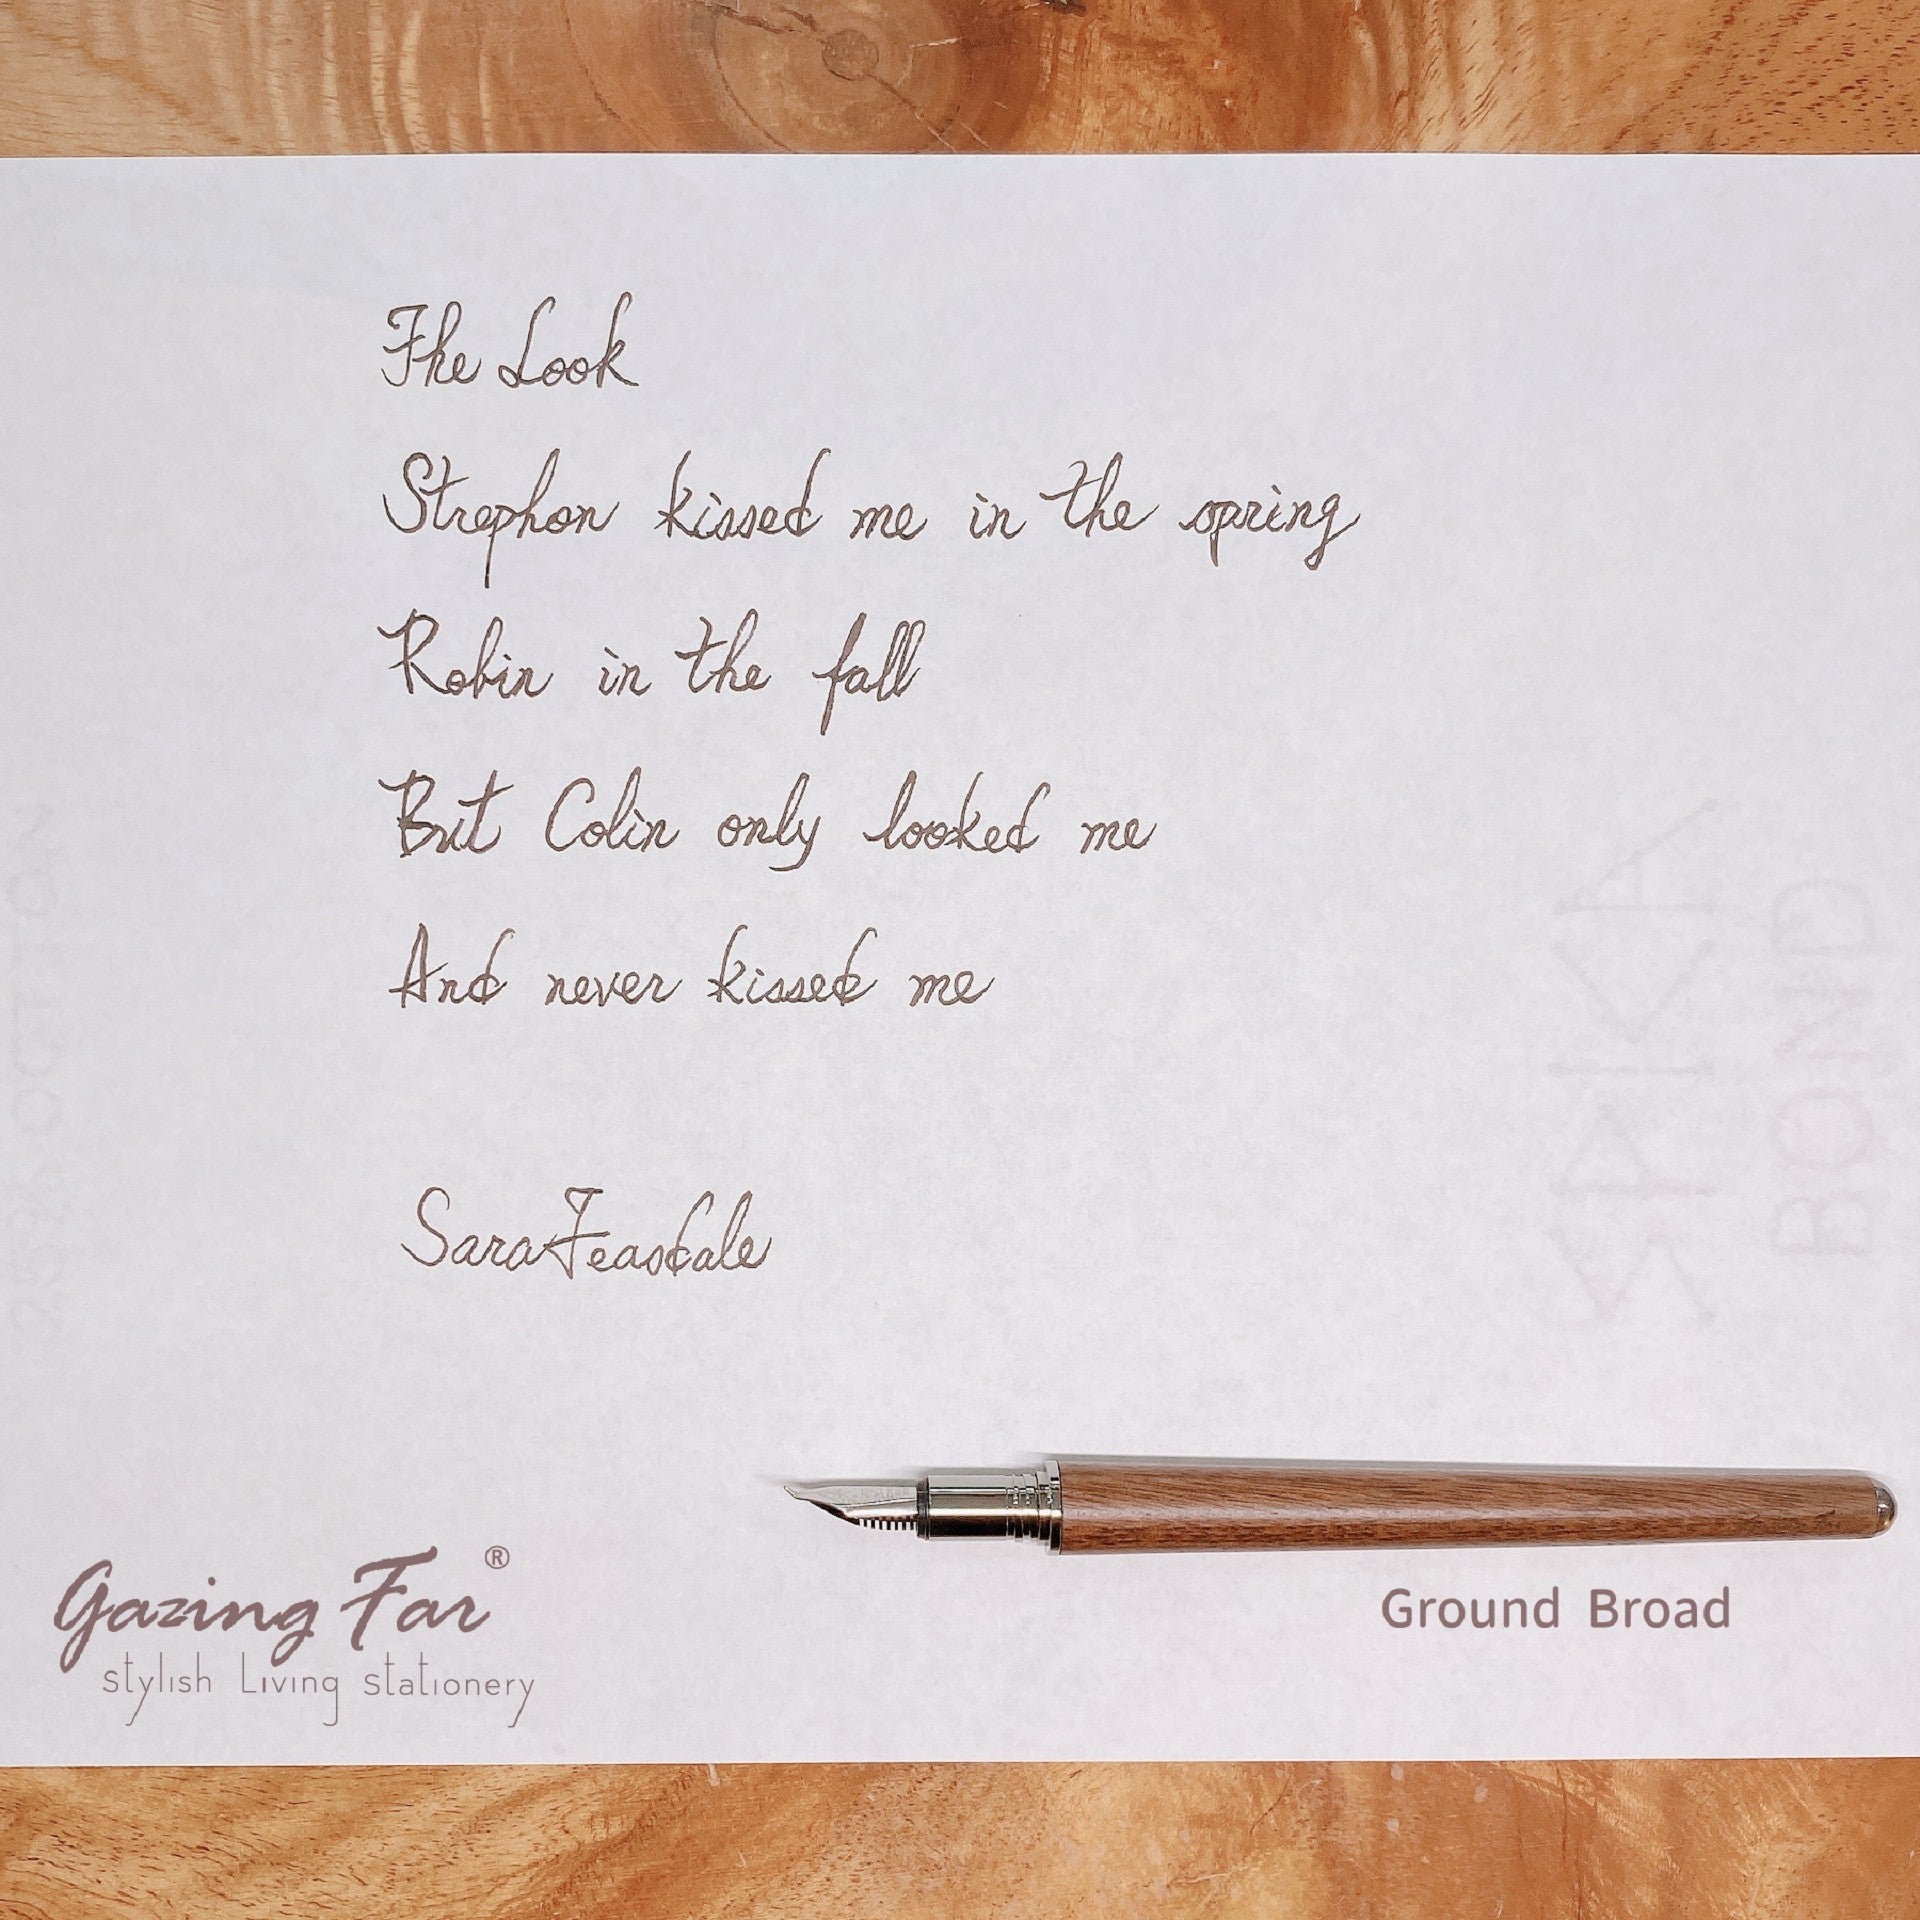 The Look
Strephon kissed me in the spring
Robin in the fall
But Colin only looked me
And never kissed me
Sara Teasdale
Gazing Far®
stylish Living stationery
Ground Broad
BOND